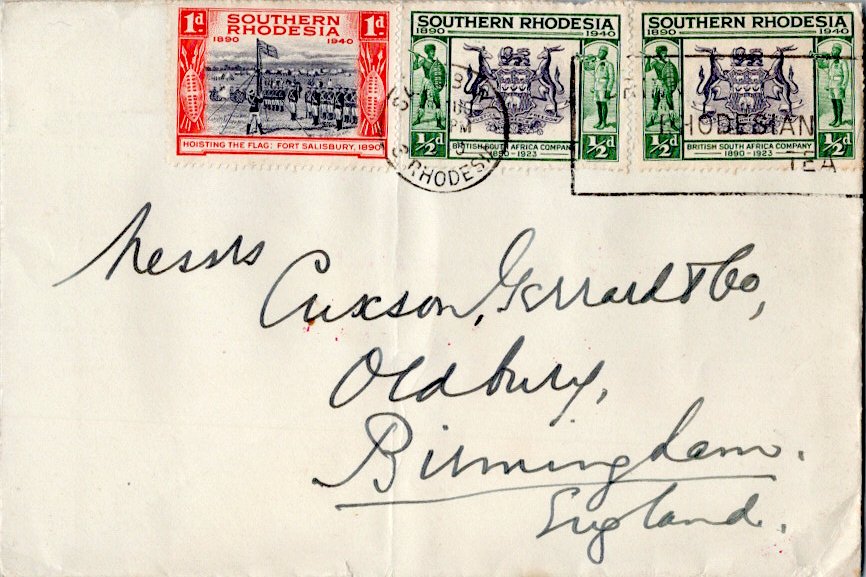 1d SOUTHERN RHODESIA 1d
1890 1940
HOISTING THE FLAG: FORT SALISBURY, 1890
SOUTHERN RHODESIA
1890 1940
½d BRITISH SOUTH AFRICA COMPANY ½d
1890 - 1923
SOUTHERN RHODESIA
1890 1940
½d BRITISH SOUTH AFRICA COMPANY ½d
1890 - 1923
PM
S. RHODESIA
RHODESIAN
TEA
Messrs
Cuxson, Gerrard & Co,
Oldbury,
Birmingham.
England.